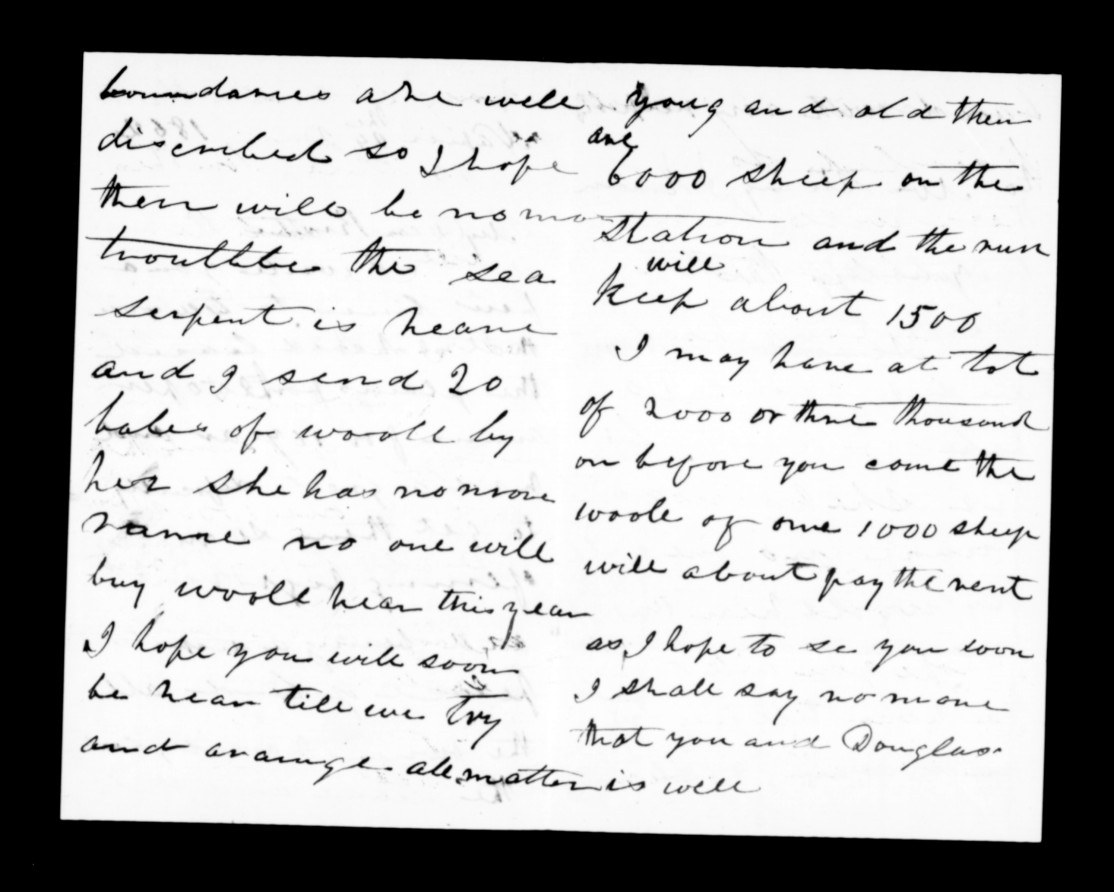 boundaries are well
discribed so I hope
there will be no mo
troullble the sea
serpent is heare
and I send 20
bales of wooll by
her she has no more
rume no one will
buy wooll hear this year
I hope you will soon
be hear till we try
and araunge all matter
Young and old there
are
6000 sheep on the
station and the run
will
keep about 1500
I may have at tot
of 2000 or three thousand
on before you come the
woole of one 1000 sheep
will about pay the rent
as I hope to se you soon
I shall say no more
that you and Douglas
is well